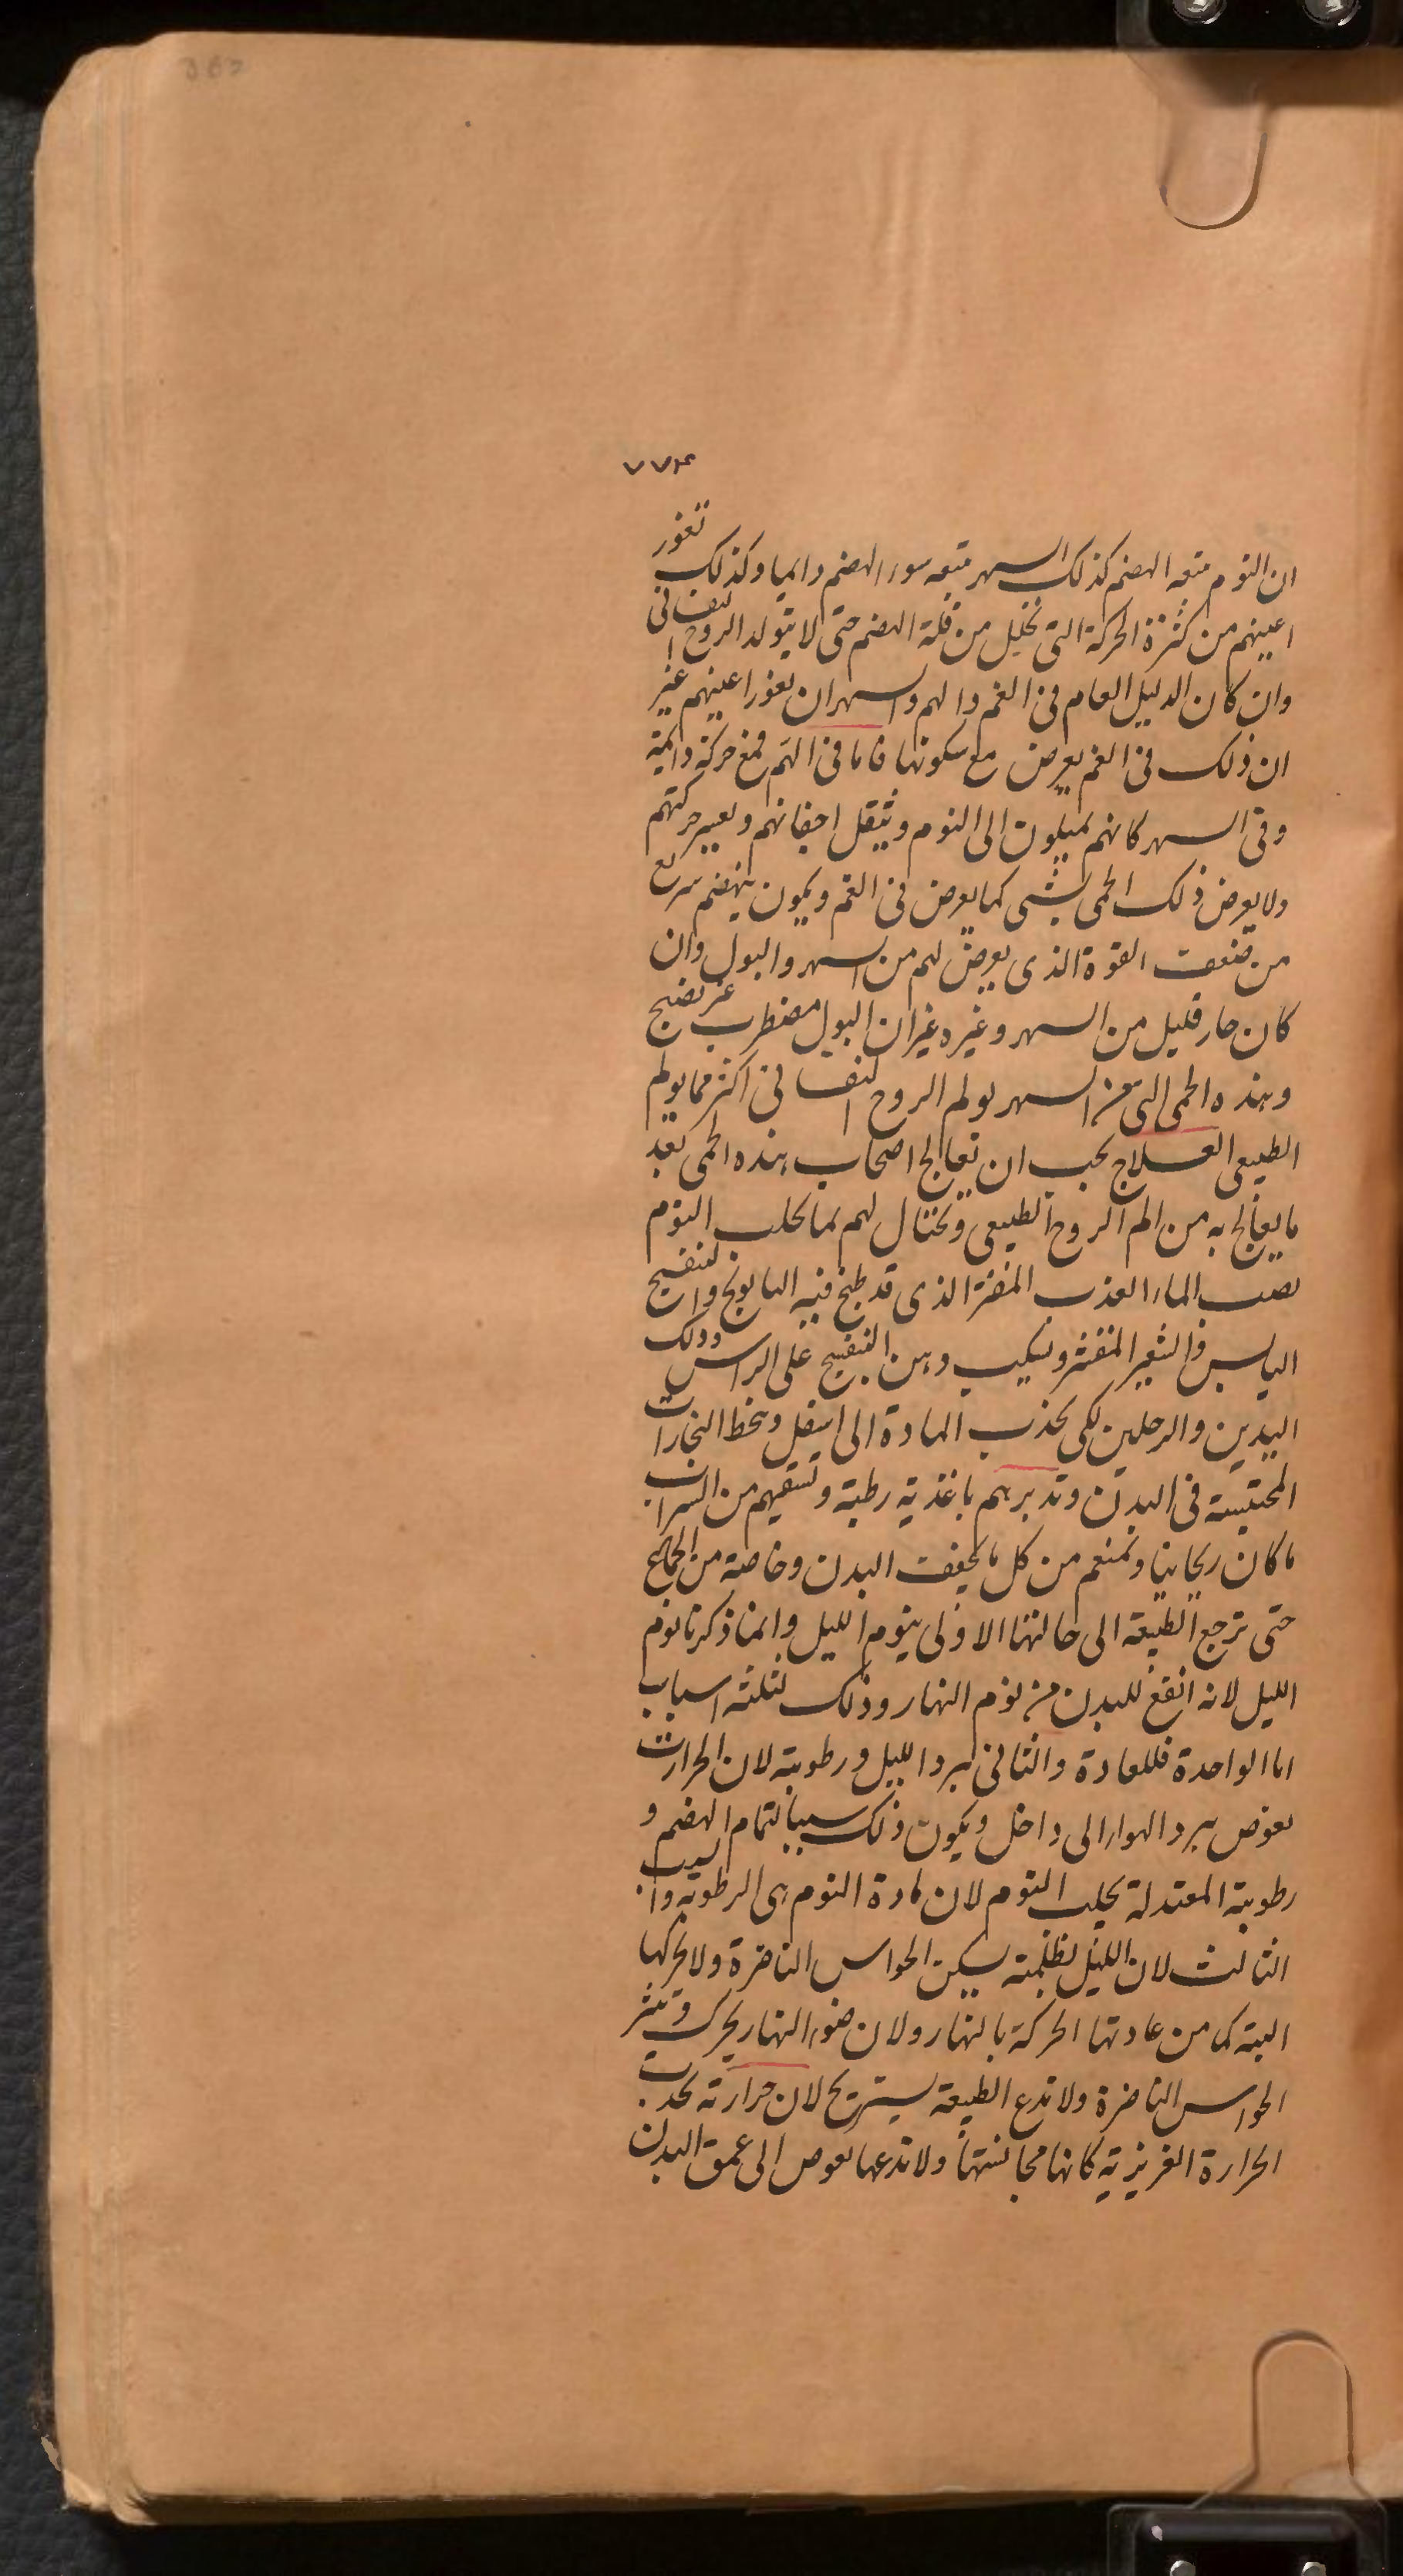 ٧٧٤
ان النوم يتبعه الهضم كذلك السهر يتبعه سوء الهضم دايما وكذلك تغور
اعينهم من كثرة الحركة التى تحلل من قلة الهضم حتى لا يتولد الروح النفسانى
وان كان الدليل العام فى الغم والهم والسهر ان تغور اعينهم غير
ان ذلك فى الغم يعرض مع سكونها فاما فى الهم فمع حركة دائمة
وفى السهر كانهم يميلون الى النوم وتثقل اجفانهم وتعسر حركتهم
ولا يعرض ذلك الحمى بشى كما يعرض فى الغم ويكون نبضهم سريع
من ضعف القوة الذى يعرض لهم من السهر والبول وان
كان حار قليل من السهر وغيره غير ان البول مضطرب غير نضيج
وهذه الحمى التى من السهر يولم الروح النفسانى اكثر مما يولم
الطبيعى العلاج يجب ان تعالج اصحاب هذه الحمى بعد
ما يعالج به من الم الروح الطبيعى وتحتال لهم بما يجلب النوم
بصب الماء العذب المفتر الذى قد طبخ فيه البابونج والبنفسج
اليابس والشعير المقشر وبسكب دهن البنفسج على الراس ودلك
اليدين والرجلين لكى يجذب المادة الى اسفل وينحط البخارات
المحتبسة فى البدن وتدبرهم باغذية رطبة وتسقيهم من الشراب
ما كان ريحانيا وتمنعهم من كل ما يجفف البدن وخاصة من الجماع
حتى ترجع الطبيعة الى حالتها الاولى بنوم الليل وانما ذكرنا نوم
الليل لانه انفع للبدن من نوم النهار وذلك لثلثة اسباب
اما الواحدة فللعادة والثانى لبرد الليل ورطوبته لان الحرارت
يغوص ببرد الهواء الى داخل ويكون ذلك سببا لتمام الهضم و
رطوبته المعتدلة يجلب النوم لان مادة النوم هى الرطوبة والسبب
الثالث لان الليل بظلمته يسكن الحواس الناضرة ولا يحركها
البتة كما من عادتها الحركة بالنهار ولان ضوء النهار يحرك وينشر
الحواس الناضرة ولا تدع الطبيعة يستريح لان حرارته تجذب
الحرارة الغريزية كانها مجانستها ولا تدعها يغوص الى عمق البدن